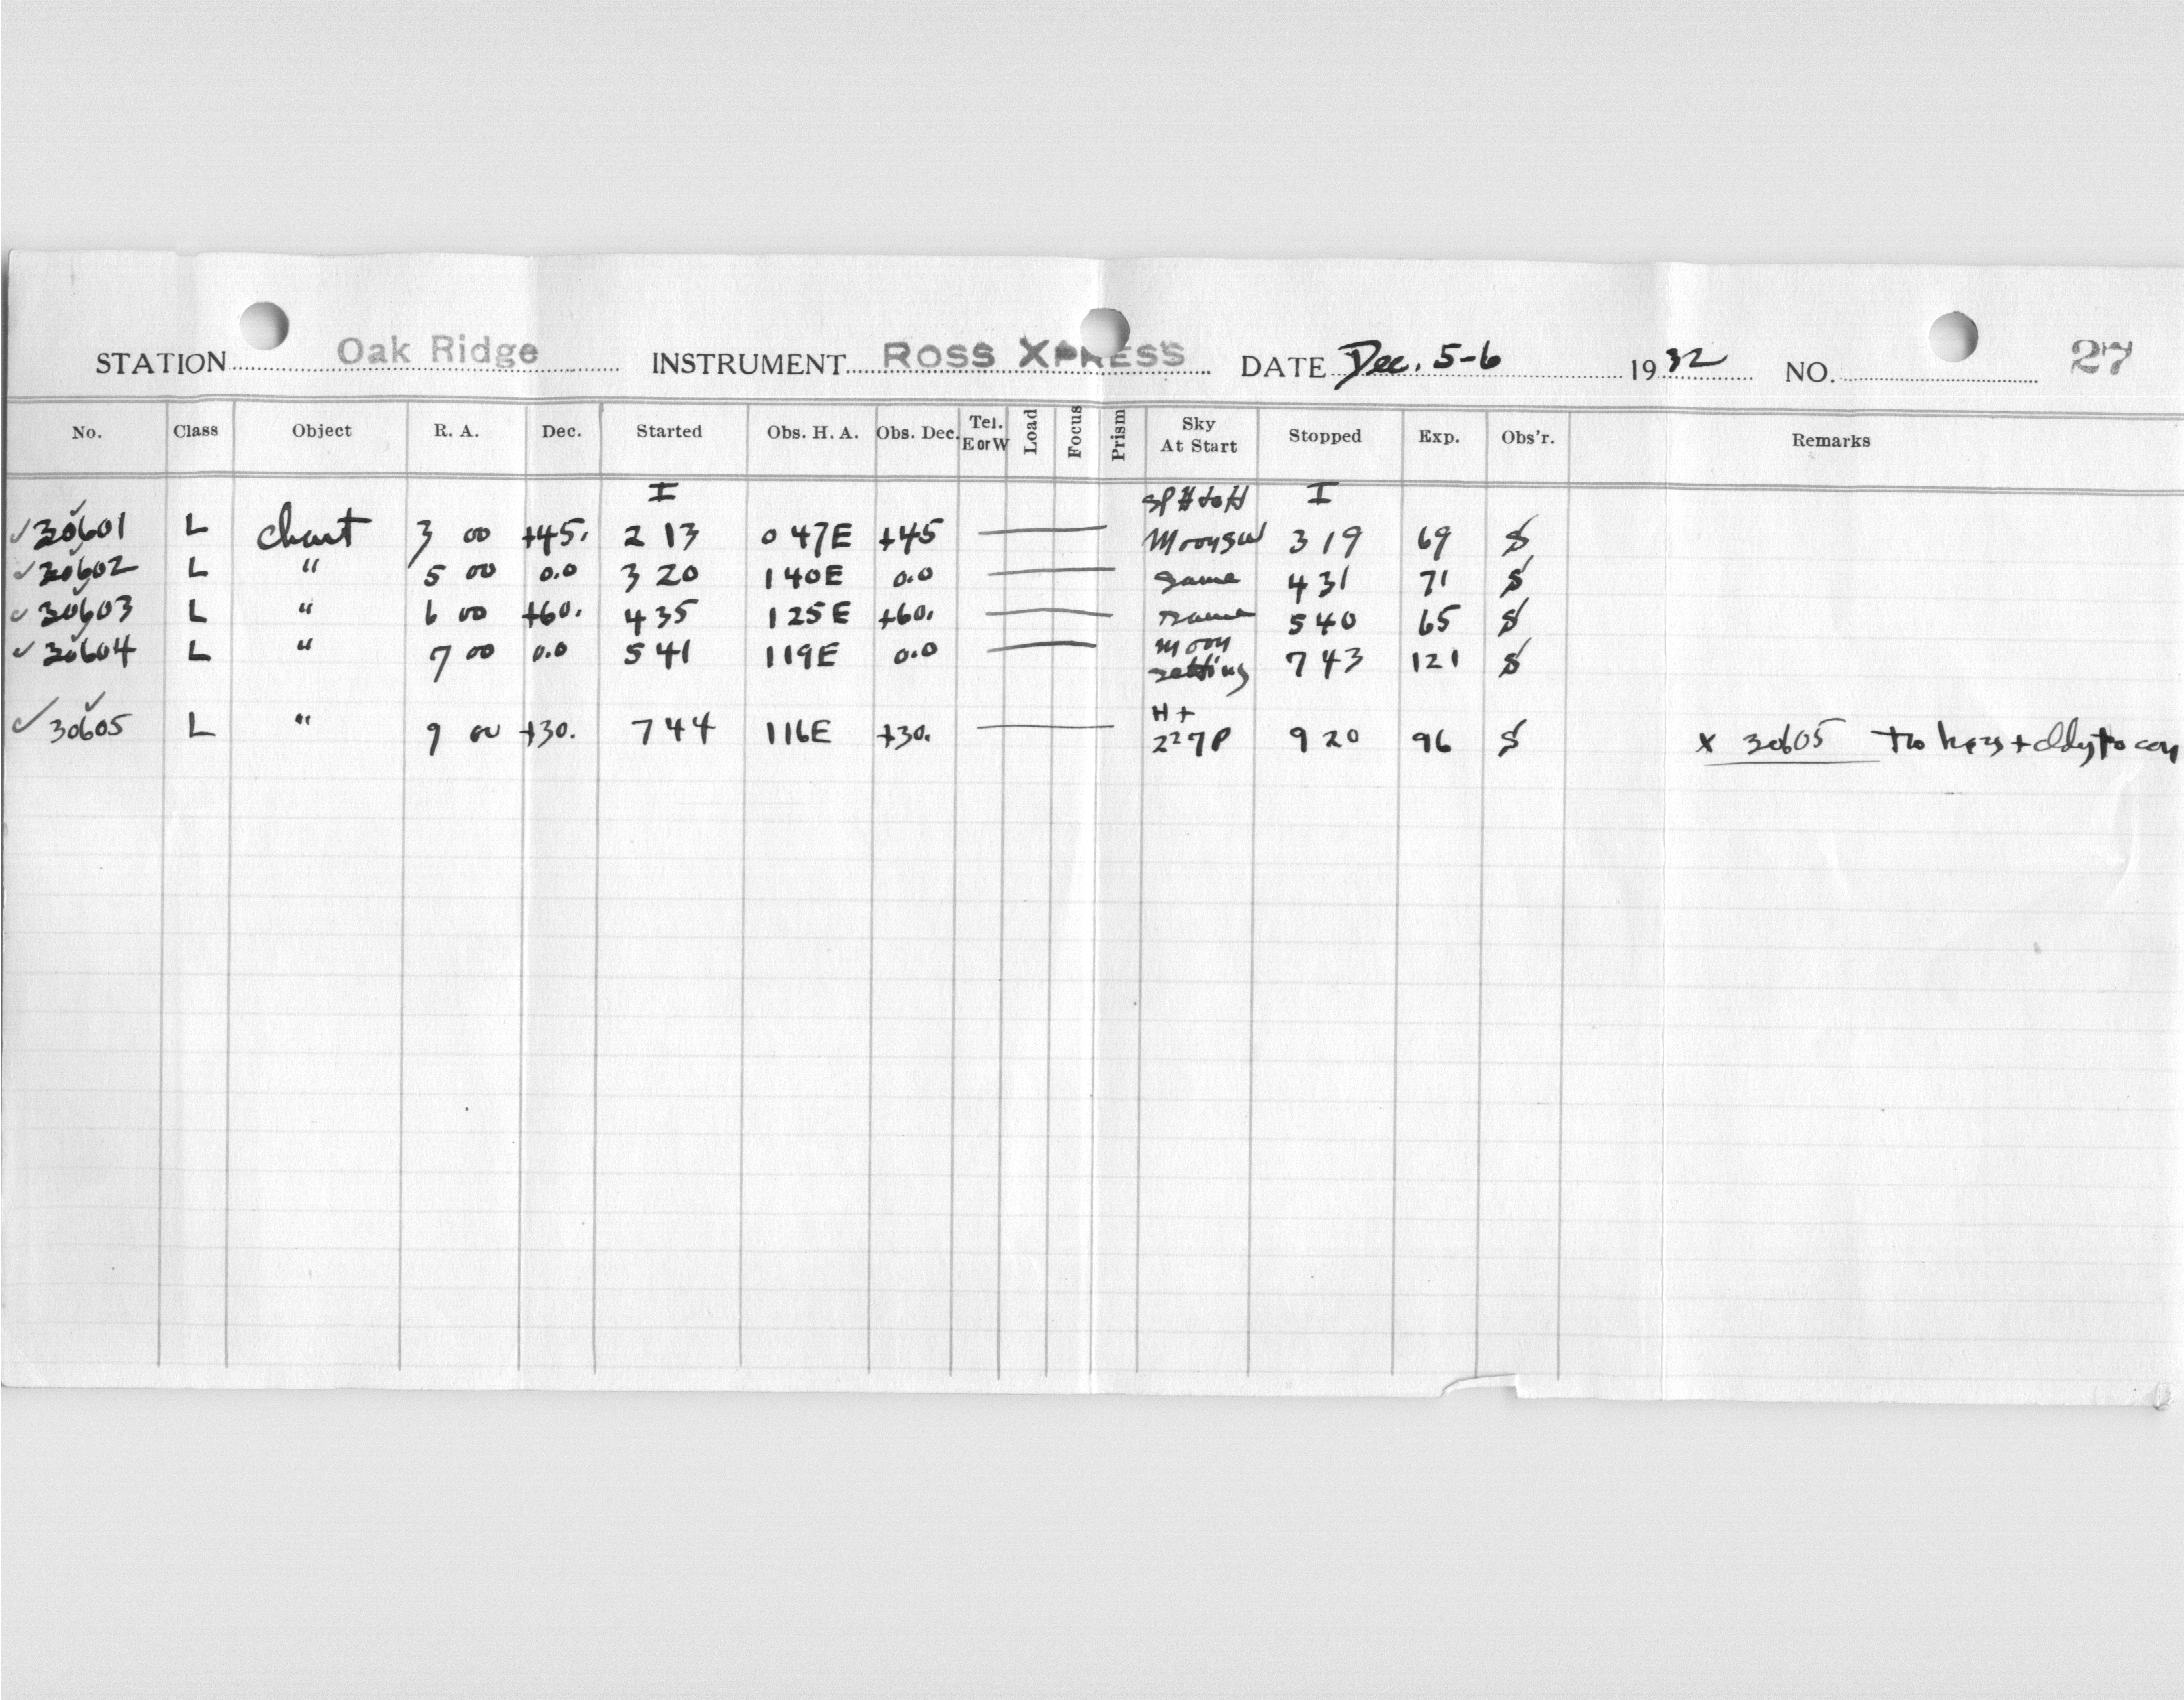 STATION Oak Ridge INSTRUMENT ROSS XPRESS DATE Dec. 5-6 1932 NO. 27
No. Class Object R. A. Dec. Started Obs. H. A. Obs. Dec. Tel. E or W Load Focus Prism Sky At Start Stopped Exp. Obs'r. Remarks
I I
30601 L chart 3 00 +45. 2 13 0 47E +45 3 19 69 S
30602 L " 5 00 0.0 3 20 1 40E 0.0 same 4 31 71 S
30603 L " 6 00 +60. 4 35 1 25E +60. same 5 40 65 S
30604 L " 7 00 0.0 5 41 1 19E 0.0 moon setting 7 43 121 S
30605 L " 9 00 +30. 7 44 1 16E +30. H+ 22 7P 9 20 96 S x 30605